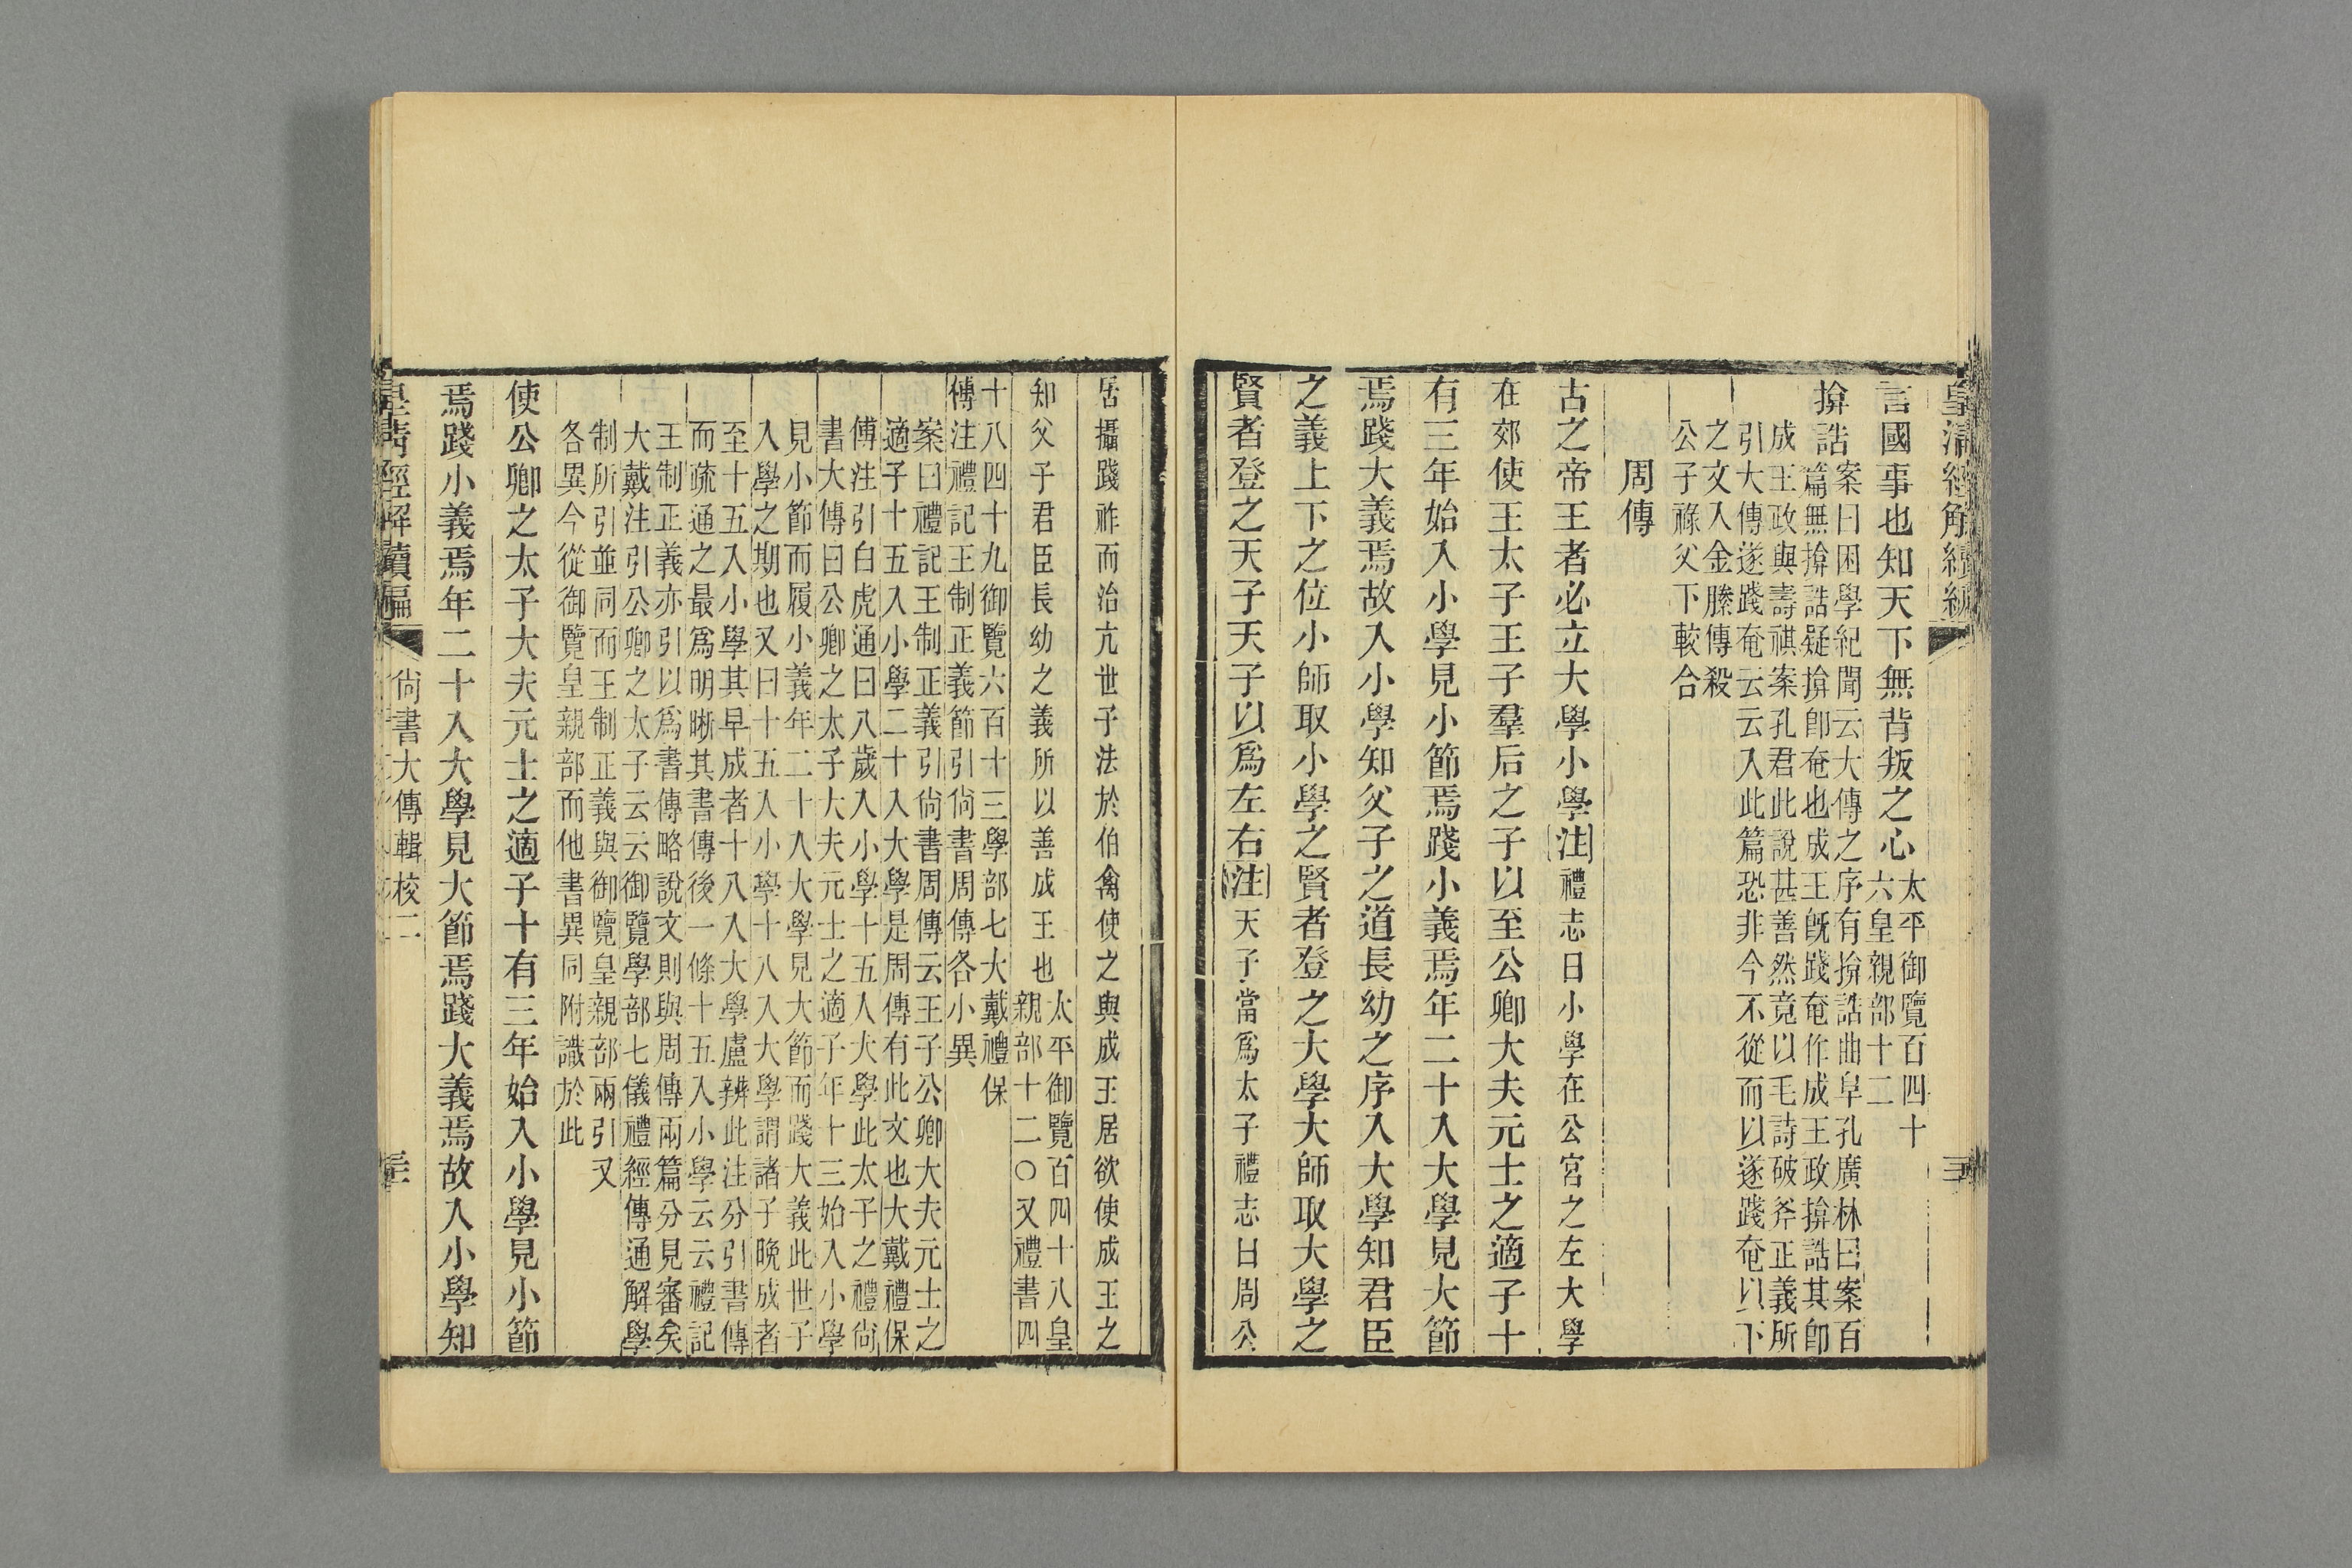 皇清經解續編
言國事也知天下無背叛之心太平御覽百四十六皇親部十二
揜誥案曰困學紀聞云大傳之序有揜誥曲阜孔廣林曰案百篇無揜誥疑揜卽奄也成王旣踐奄作成王政揜誥其卽
成王政與壽祺案孔君此說甚善然竟以毛詩破斧正義所引大傳遂踐奄云云入此篇恐非今不從而以遂踐奄以下
之文入金縢傳殺公子祿父下較合
周傳
古之帝王者必立大學小學注禮志曰小學在公宮之左大學
在郊使王太子王子羣后之子以至公卿大夫元士之適子十
有三年始入小學見小節焉踐小義焉年二十入大學見大節
焉踐大義焉故入小學知父子之道長幼之序入大學知君臣
之義上下之位小師取小學之賢者登之大學大師取大學之
賢者登之天子天子以爲左右注天子當爲太子禮志曰周公
居攝踐祚而治亢世子法於伯禽使之與成王居欲使成王之
知父子君臣長幼之義所以善成王也太平御覽百四十八皇親部十二〇又禮書四
十八四十九御覽六百十三學部七大戴禮保傅注禮記王制正義節引尙書周傳各小異
案曰禮記王制正義引尙書周傳云王子公卿大夫元士之適子十五入小學二十入大學是周傳有此文也大戴禮保
傅注引白虎通曰八歲入小學十五入大學此太子之禮尙書大傳曰公卿之太子大夫元士之適子年十三始入小學
見小節而履小義年二十入大學見大節而踐大義此世子入學之期也又曰十五入小學十八入大學謂諸子晚成者
至十五入小學其早成者十八入大學盧辨此注分引書傳而疏通之最爲明晰其書傳後一條十五入小學云云禮記
王制正義亦引以爲書傳略說文則與周傳兩篇分見審矣大戴注引公卿之太子云云御覽學部七儀禮經傳通解學
制所引並同而王制正義與御覽皇親部兩引又各異今從御覽皇親部而他書異同附識於此
使公卿之太子大夫元士之適子十有三年始入小學見小節
焉踐小義焉年二十入大學見大節焉踐大義焉故入小學知
皇淸經解續編 尙書大傳輯校二